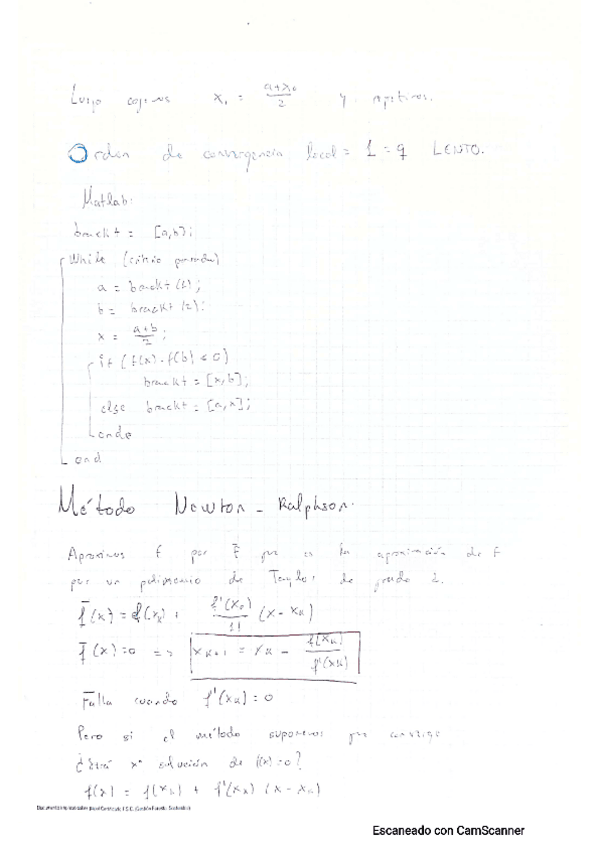 Luego cogemos x₁ = (a+x₀)/2 y repetimos.
Orden de convergencia local = 1 = q LENTO.
Matlab:
brackt = [a,b];
While (criterio parada)
a = brackt(1);
b = brackt(2);
x = (a+b)/2;
if (f(x)·f(b) < 0)
brackt = [x,b];
else brackt = [a,x];
end
Método Newton - Ralphson.
Aproximos f por f̄ que es la aproximación de f
por un polinomio de Taylor de grado
f̄(x) = f(xₖ) + f'(xₖ)/1! (x - xₖ)
f̄(x) = 0 => xₖ₊₁ = xₖ - f(xₖ)/f'(xₖ)
Falla cuando f'(xₖ) = 0
Pero si el método suponemos que converge
¿Será x* solución de f(x) = 0?
f(x) = f(xₖ) + f'(xₖ) (x - xₖ)
Escaneado con CamScanner